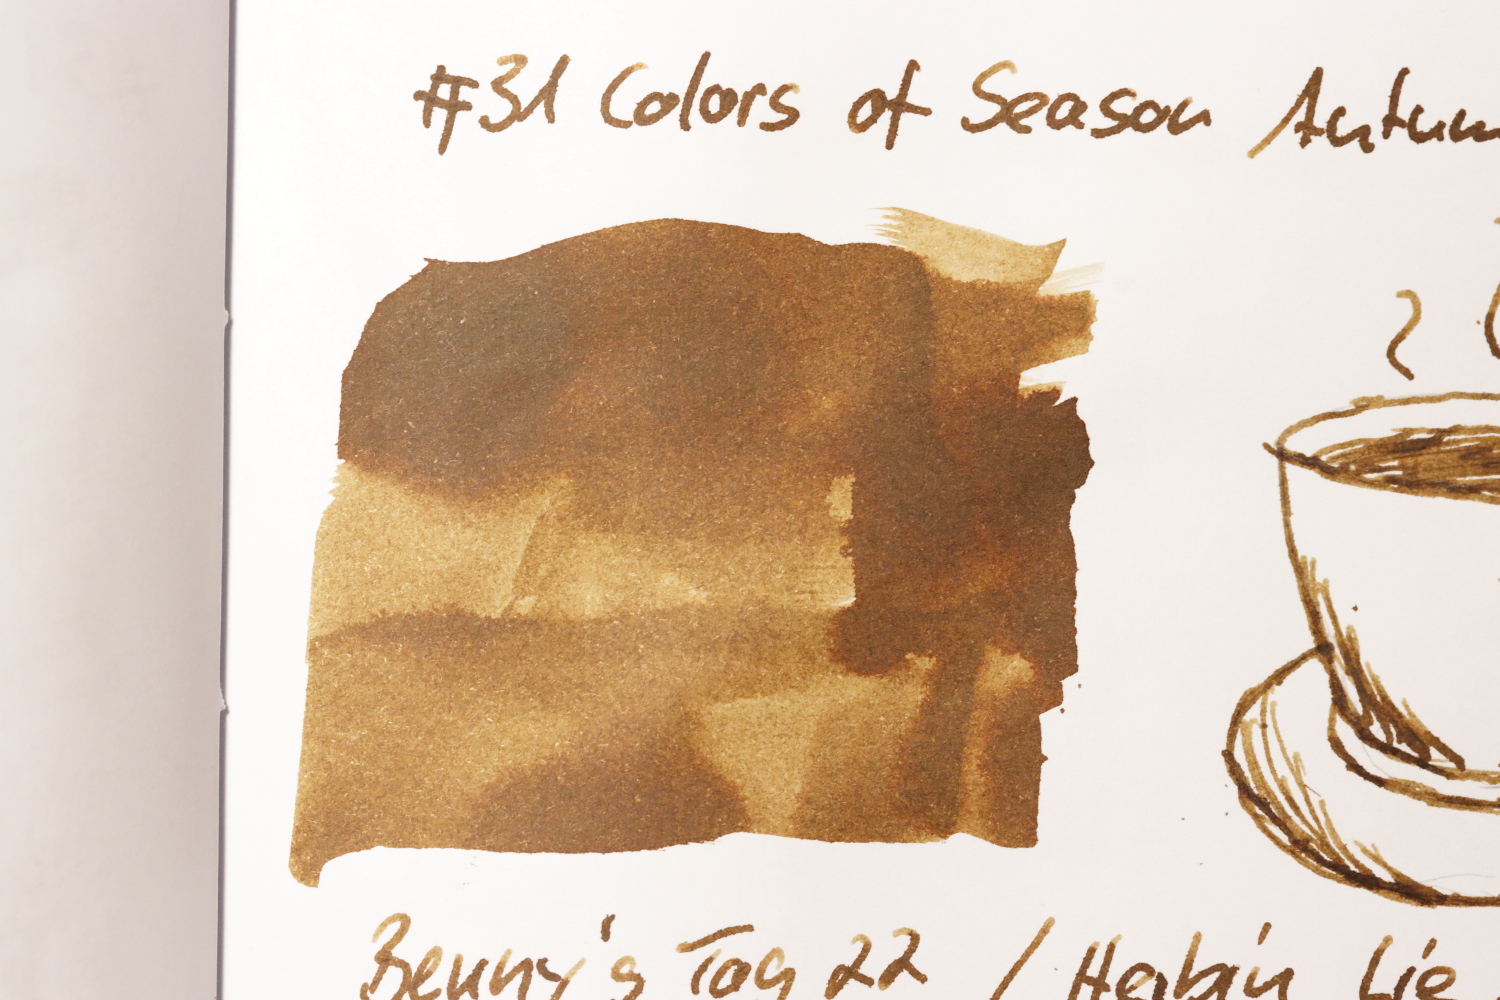 #31 Colors of Season Autum
Benny's Tag 22 / Herbin Lie